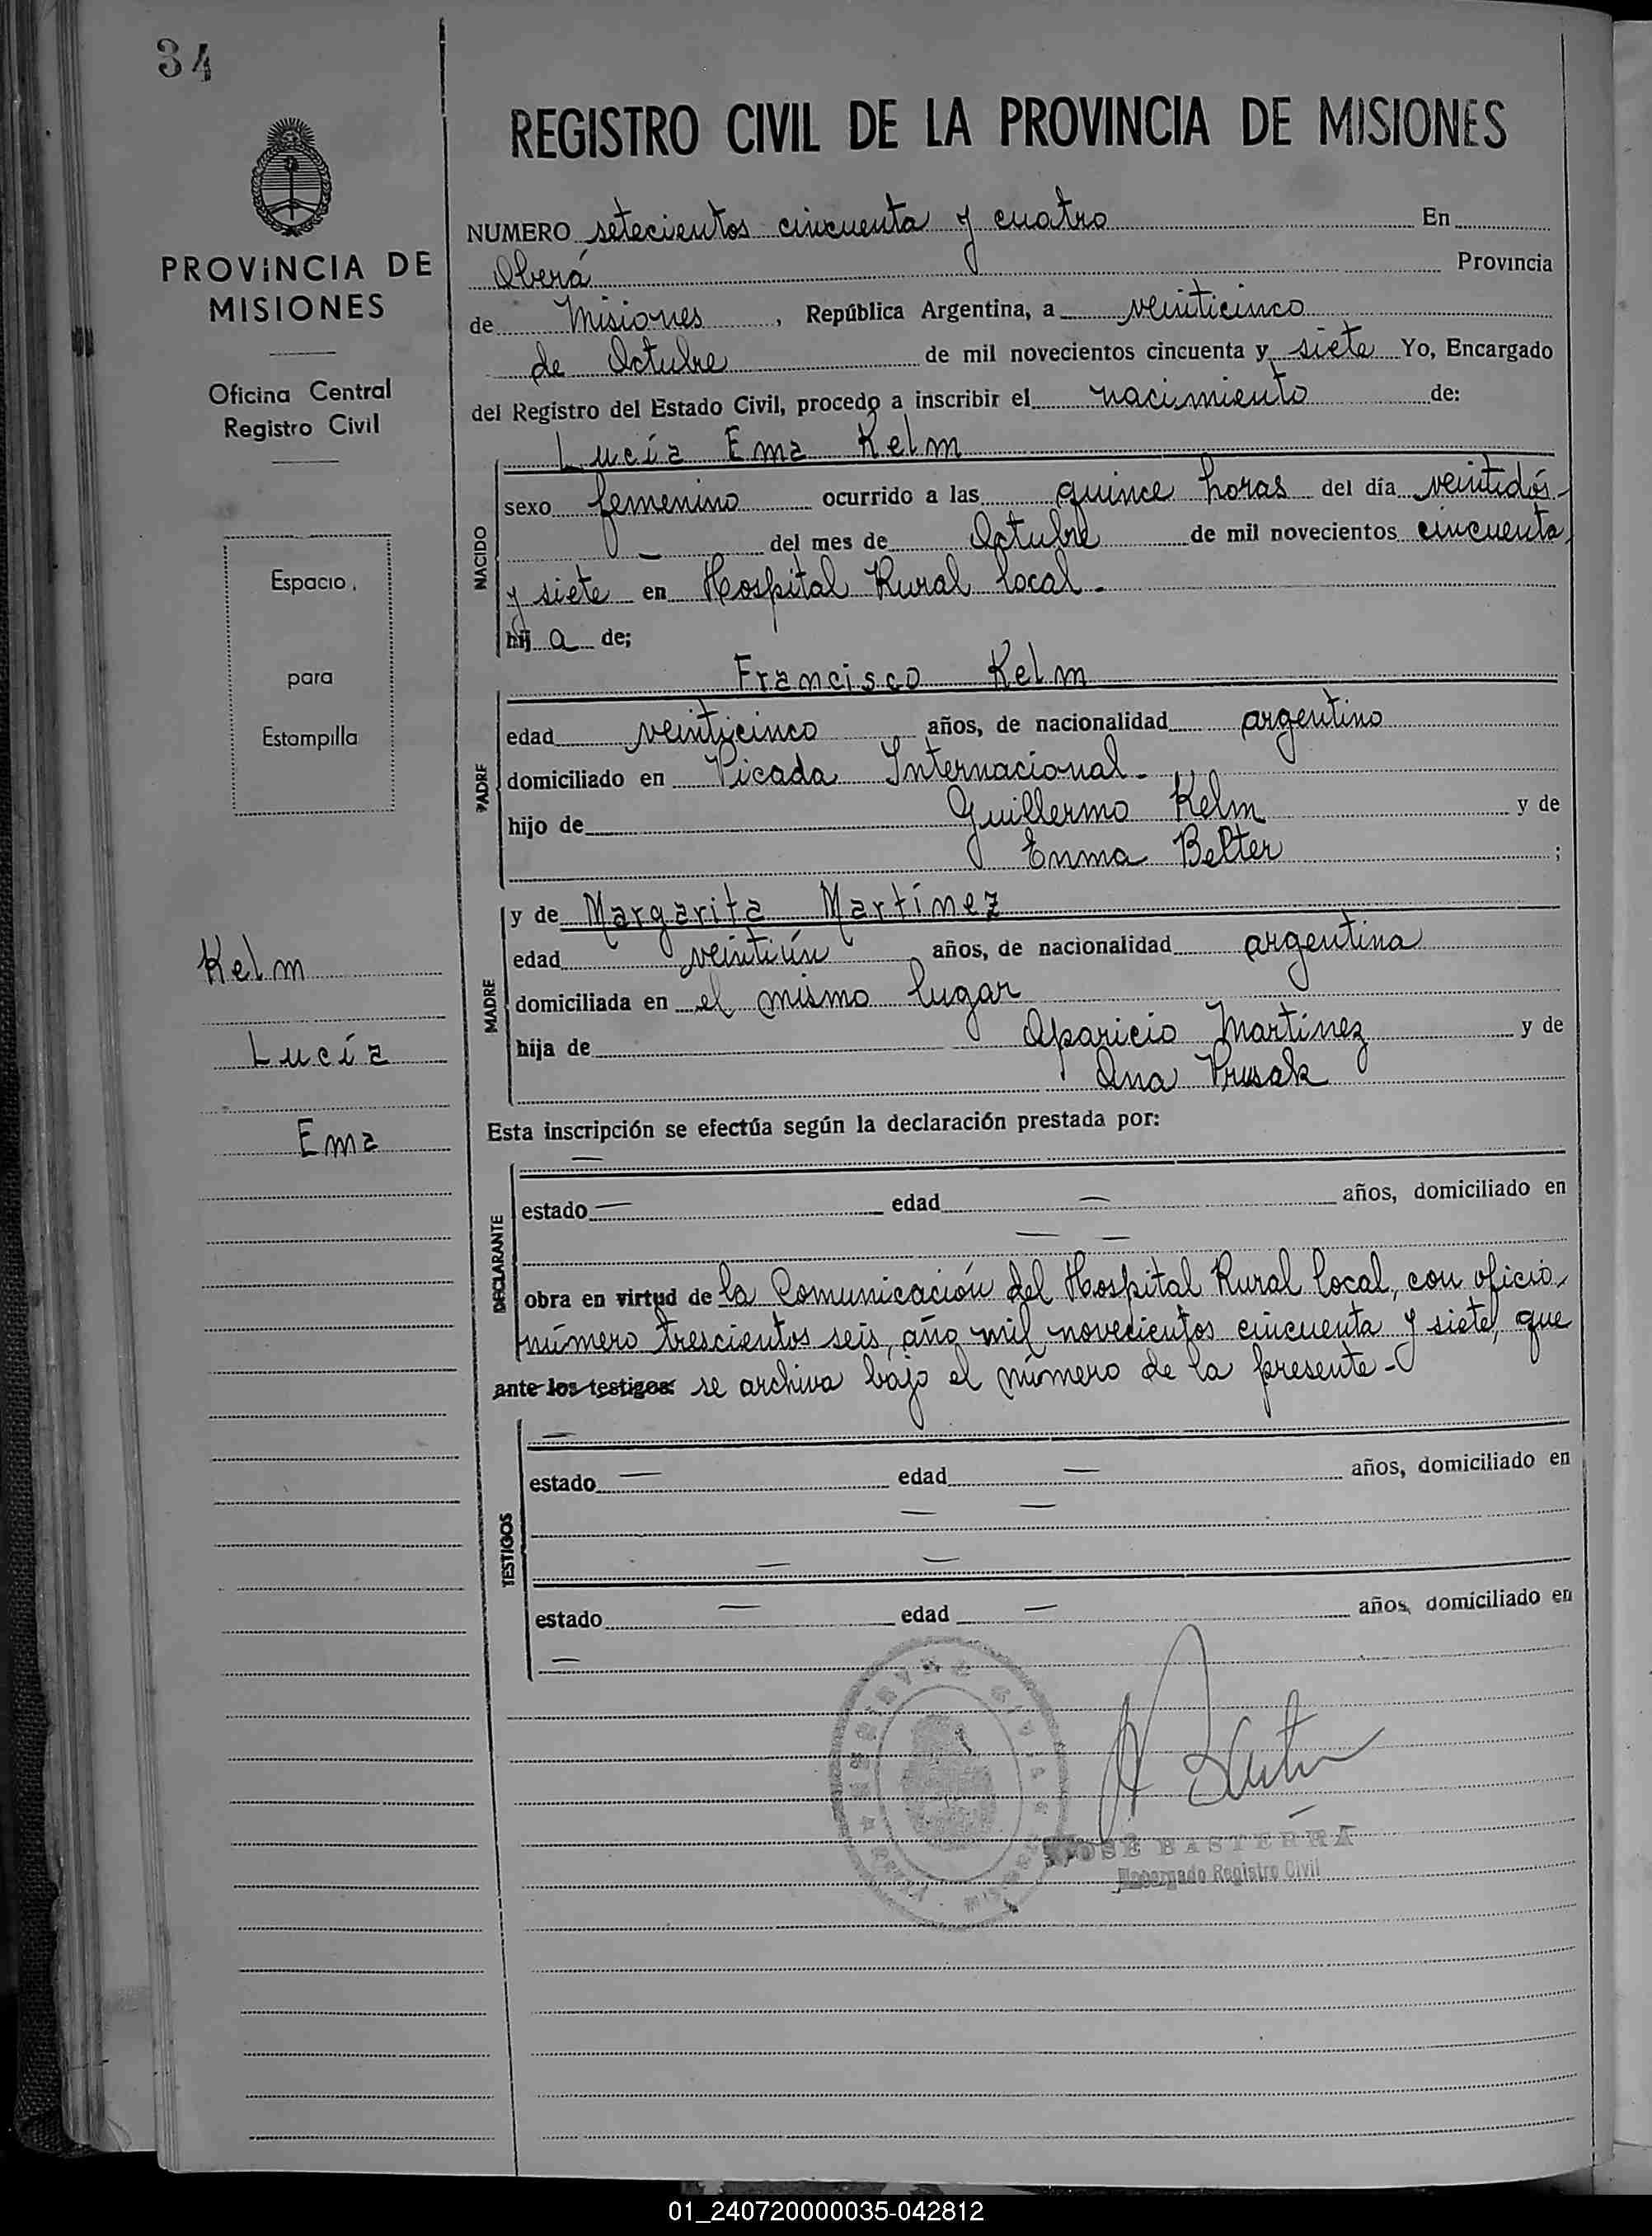 34
REGISTRO CIVIL DE LA PROVINCIA DE MISIONES
PROVINCIA DE
MISIONES
Oficina Central
Registro Civil
Espacio
para
Estampilla
Kelm
Lucía
Ema
NUMERO setecientos cincuenta y cuatro En
Oberá Provincia
de Misiones, República Argentina, a veinticinco
de Octubre de mil novecientos cincuenta y siete Yo, Encargado
del Registro del Estado Civil, procedo a inscribir el nacimiento de:
Lucía Ema Kelm
NACIDO
sexo femenino ocurrido a las quince horas del día veintidós
— del mes de Octubre de mil novecientos cincuenta
y siete en Hospital Rural local.-
hij a de;
Francisco Kelm
PADRE
edad veinticinco años, de nacionalidad argentino
domiciliado en Picada Internacional.-
hijo de Guillermo Kelm y de
Emma Belter ;
MADRE
y de Margarita Martínez
edad veintiún años, de nacionalidad argentina
domiciliada en el mismo lugar
hija de Aparicio Martinez y de
Ana Prusak
Esta inscripción se efectúa según la declaración prestada por:
—
DECLARANTE
estado — edad — años, domiciliado en
— —
obra en virtud de la Comunicación del Hospital Rural local, con oficio
número trescientos seis, año mil novecientos cincuenta y siete, que
ante los testigos: se archiva bajo el número de la presente.-
—
TESTIGOS
estado — edad — años, domiciliado en
— —
— —
estado — edad — años, domiciliado en
—
JOSÉ BASTERRA
Encargado Registro Civil
01_240720000035-042812